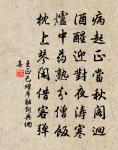 病起正當秋閣迥
酒醒迎對夜濤寒
爐中藥熟分僧飯
枕上琴閑借客彈